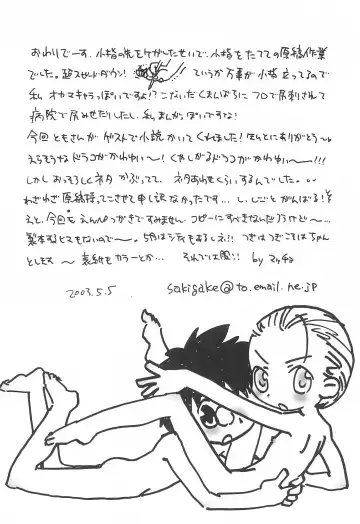 おわりでーす。小指の先をケガしたせいで、小指をたてての原稿作業
でした。超スピードダウン! ていうか万事が小指立ってるので
私、オカマキャラっぽいですよ!?こないだくまんばちにフロで尻刺されて
病院で尻みせたりしたし、私まんがっぽいですな!
今回ともさんがゲストで小説かいてくれました!ほんとにありがとう〜
えらそうなドラコがかわいい〜!くやしがるドラコがかわいい〜!!!
しかしおそろしくネタかぶってて、ネタあわせくらいするんでした。
わざわざ原稿 こさせて申し訳なかったです…し、しごとがんばる!
えと、今回も えんぴつがきですみません。コピーにすべきなんだろうけど〜…
製本 ヒマもないので〜。5月はシティもあるしネ!!つぎはつぎこそはちゃんと
とします〜 表紙もカラーとか… それでは!! by
2003.5.5 sakigake@to.email.ne.jp